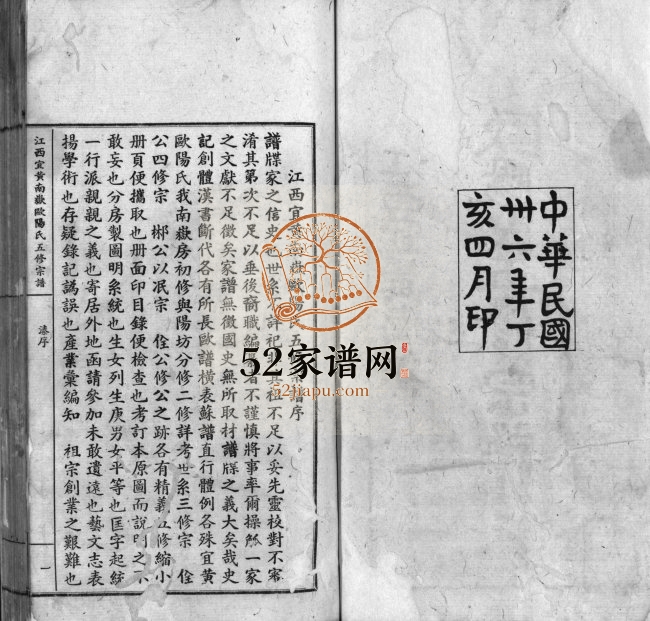 中華民國
卅六年丁
亥四月印
江西宜黃南嶽歐陽氏五修宗譜序
譜牒家之信史也世系 詳祀 其祖不足以妥先靈校對不審
淆其第次不足以垂後裔職編 者不謹慎將事率爾操觚一家
之文獻不足徵矣家譜無徵國史無所取材譜牒之義大矣哉史
記創體漢書斷代各有所長歐譜橫表蘇譜直行體例各殊宜黃
歐陽氏我南嶽房初修與陽坊分修二修詳考世系三修宗 佺
公四修宗 郴公以泯宗 佺公修公之跡各有精義五修縮小
册頁便攜取也册面印目錄便檢查也考訂本原圖而說明之不
敢妄也分房製圖明系統也生女列生庚男女平等也匡字起統
一行派親親之義也寄居外地函請參加未敢遺遠也藝文志表
揚學術也存疑錄記譌誤也產業彙編知 祖宗創業之艱難也
江西宜黃南嶽歐陽氏五修宗譜
湊序
一
52家谱网
52jiapu.com